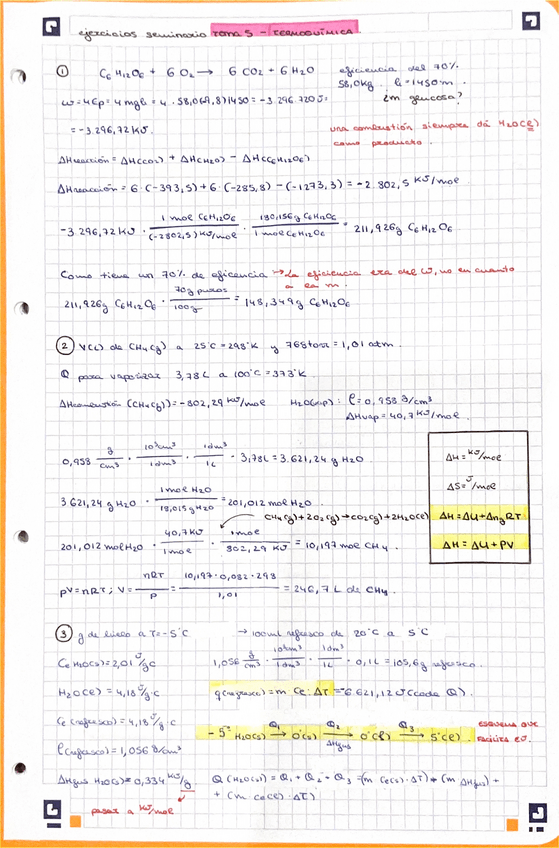 ejercicios seminario TEMA 5 - TERMOQUÍMICA.
① C₆H₁₂O₆ + 6O₂ → 6CO₂ + 6H₂O eficiencia del 70%.
58,0kg. h=1450m.
W=ΔEp=4mgh=4·58,0(9,8)1450=-3.296.720J= ¿m glucosa?
=-3.296,72KJ. una combustión siempre dá H₂O(l)
como producto.
ΔHreacción=ΔH(CO₂)+ΔH(H₂O)-ΔH(C₆H₁₂O₆)
ΔHreacción=6·(-393,5)+6·(-285,8)-(-1273,3)=-2.802,5 KJ/mol
-3.296,72KJ · 1mol C₆H₁₂O₆/(-2802,5)KJ/mol · 180,156g C₆H₁₂O₆/1mol C₆H₁₂O₆ = 211,926g C₆H₁₂O₆
Como tiene un 70% de eficiencia → La eficiencia era del W, no en cuanto
a la m.
211,926g C₆H₁₂O₆ · 70g puros/100g = 148,349g C₆H₁₂O₆
② V(L) de CH₄(g) a 25°C=298°K y 768torr=1,01atm.
Q para vaporizar 3,78L a 100°C=373°K.
ΔHcombustión(CH₄(g))=-802,29 KJ/mol H₂O(vap): ρ=0,958 g/cm³
ΔHvap=40,7KJ/mol.
0,958 g/cm³ · 10³cm³/1dm³ · 1dm³/1L · 3,78L=3.621,24g H₂O
ΔH=KJ/mol
ΔS=J/mol
3621,24g H₂O · 1mol H₂O/18,015g H₂O=201,012mol H₂O.
CH₄(g)+2O₂(g)→CO₂(g)+2H₂O(l) ΔH=ΔU+ΔngRT
201,012mol H₂O · 40,7KJ/1mol · 1mol/802,29KJ=10,197mol CH₄. ΔH=ΔU+PV
PV=nRT; V=nRT/P=10,197·0,082·298/1,01=246,7L de CH₄.
③ g de hielo a T=-5°C → 100ml refresco de 20°C a 5°C
Ce H₂O(s)=2,01 J/g·C 1,056 g/cm³ · 10³cm³/1dm³ · 1dm³/1L · 0,1L=105,6g refresco.
H₂O(l)=4,18 J/g·C q(refresco)=m·Ce·ΔT=-6.621,12J(cede Q).
Ce(refresco)=4,18 J/g·C -5° H₂O(s) Q₁→ 0°(s) Q₂→ΔHfus 0°(l) Q₃→ 5°(l). esquema que
facilita ej.
ρ(refresco)=1,056 g/cm³
ΔHfus H₂O(s)=0,334 KJ/g Q(H₂O(s))=Q₁+Q₂+Q₃=(m Ce(s)·ΔT)+(m ΔHfus)+
pasar a KJ/mol +(m Ce(l)·ΔT)